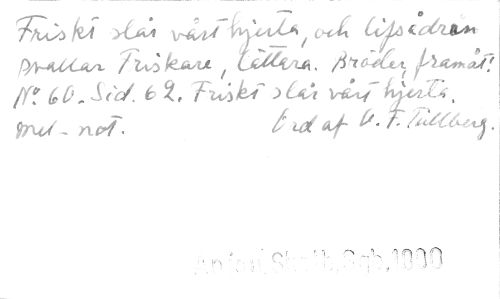 Friskt slår vårt hjerta, och lifsådran
svallar friskare, lättara. Bröder, framåt!
No. 60. Sid. 62. Friskt slår vårt hjerta.
mel-not. Ord af V. F. Tullberg.
Sgb, 1800